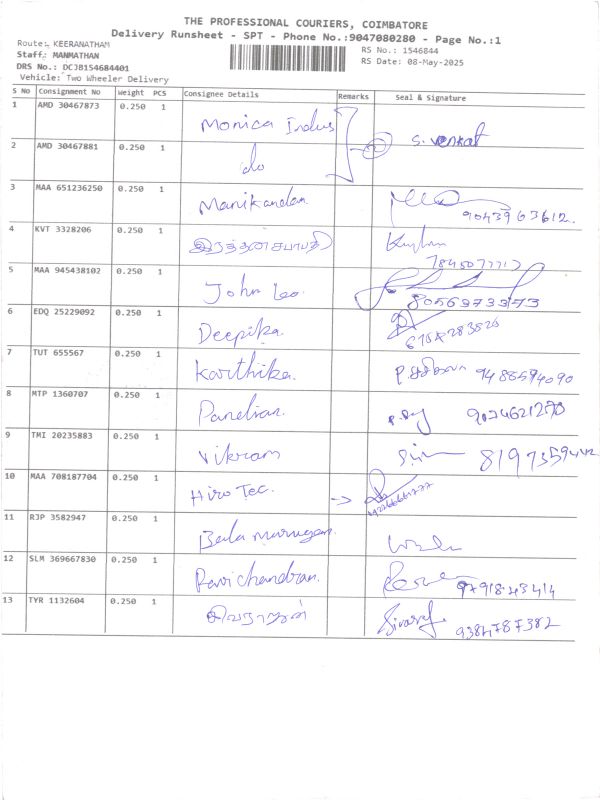 THE PROFESSIONAL COURIERS, COIMBATORE
Delivery Runsheet - SPT - Phone No.:9047080280 - Page No.:1
Route: KEERANATHAM
RS No.: 1546844
Staff: MANMATHAN
RS Date: 08-May-2025
DRS No.: DCJB154684401
Vehicle: Two Wheeler Delivery
S No Consignment No Weight PCS Consignee Details Remarks Seal & Signature
1 AMD 30467873 0.250 1 Monica Indus
S. Venkat
2 AMD 30467881 0.250 1 do
3 MAA 651236250 0.250 1 Manikandan. 9043963612.
4 KVT 3328206 0.250 1 இரத்தினசபாபதி
5 MAA 945438102 0.250 1 John Leo. 8056373373
6 EDQ 25229092 0.250 1 Deepika.
7 TUT 655567 0.250 1 Karthika. 9488594090
8 MTP 1360707 0.250 1 Pandian. 9024621270
9 TMI 20235883 0.250 1 Vikram 8197359442
10 MAA 708187704 0.250 1 Hiro Tec. →
11 RJP 3582947 0.250 1 Bala murugan.
12 SLM 369667830 0.250 1 Ravi chandran. 9791843414
13 TYR 1132604 0.250 1 சிவராஜன் Sivaraj 9384787382